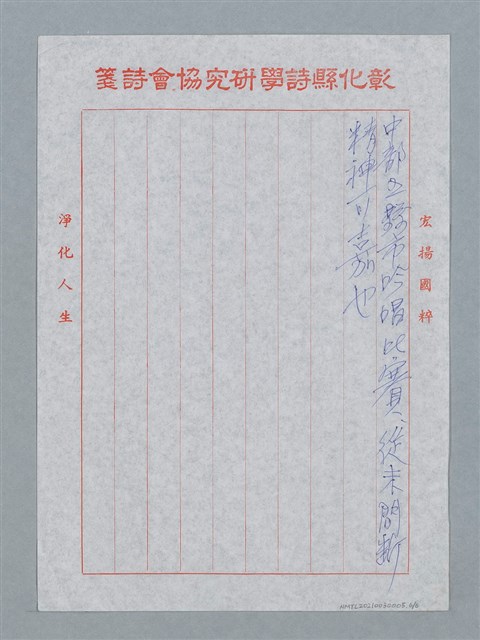 彰化縣詩學硏究協會詩箋
宏揚國粹
中部五縣市吟唱比賽、從未間斷
精神可嘉也
淨化人生
NMTL20210030008.6/6